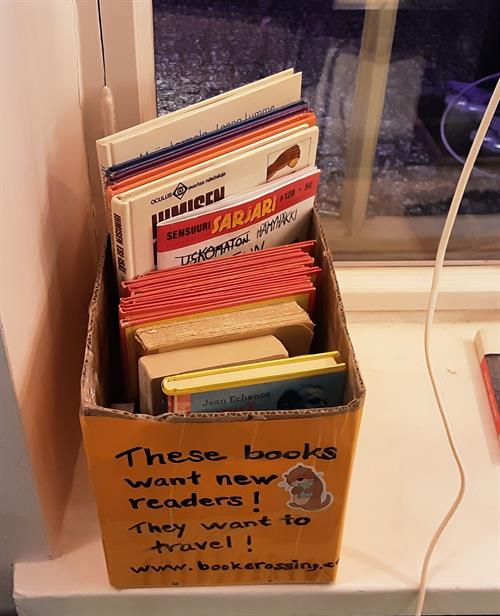 Leena Lumme
OCULUS avartaa näköaloja
IHMISEN
SENSUURI SARJARI #120
USKOMATON HÄMYHAKKI
Jean Echenoz
These books
want new
readers!
They want to
travel!
www.bookcrossing.c